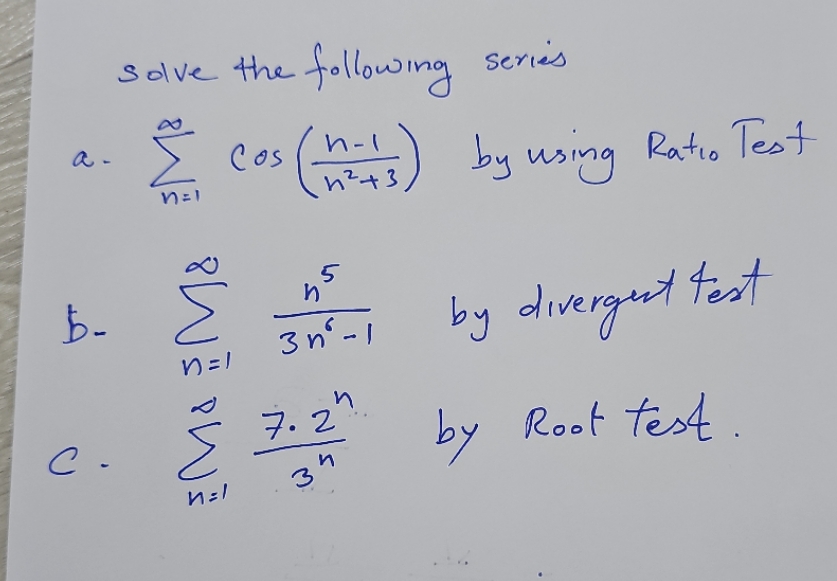 solve the following series
a. ∞∑n=1 cos (n-1 / n²+3) by using Ratio Test
b- ∞∑n=1 n⁵ / 3n⁶-1 by divergent test
c. ∞∑n=1 7.2ⁿ / 3ⁿ by Root test.